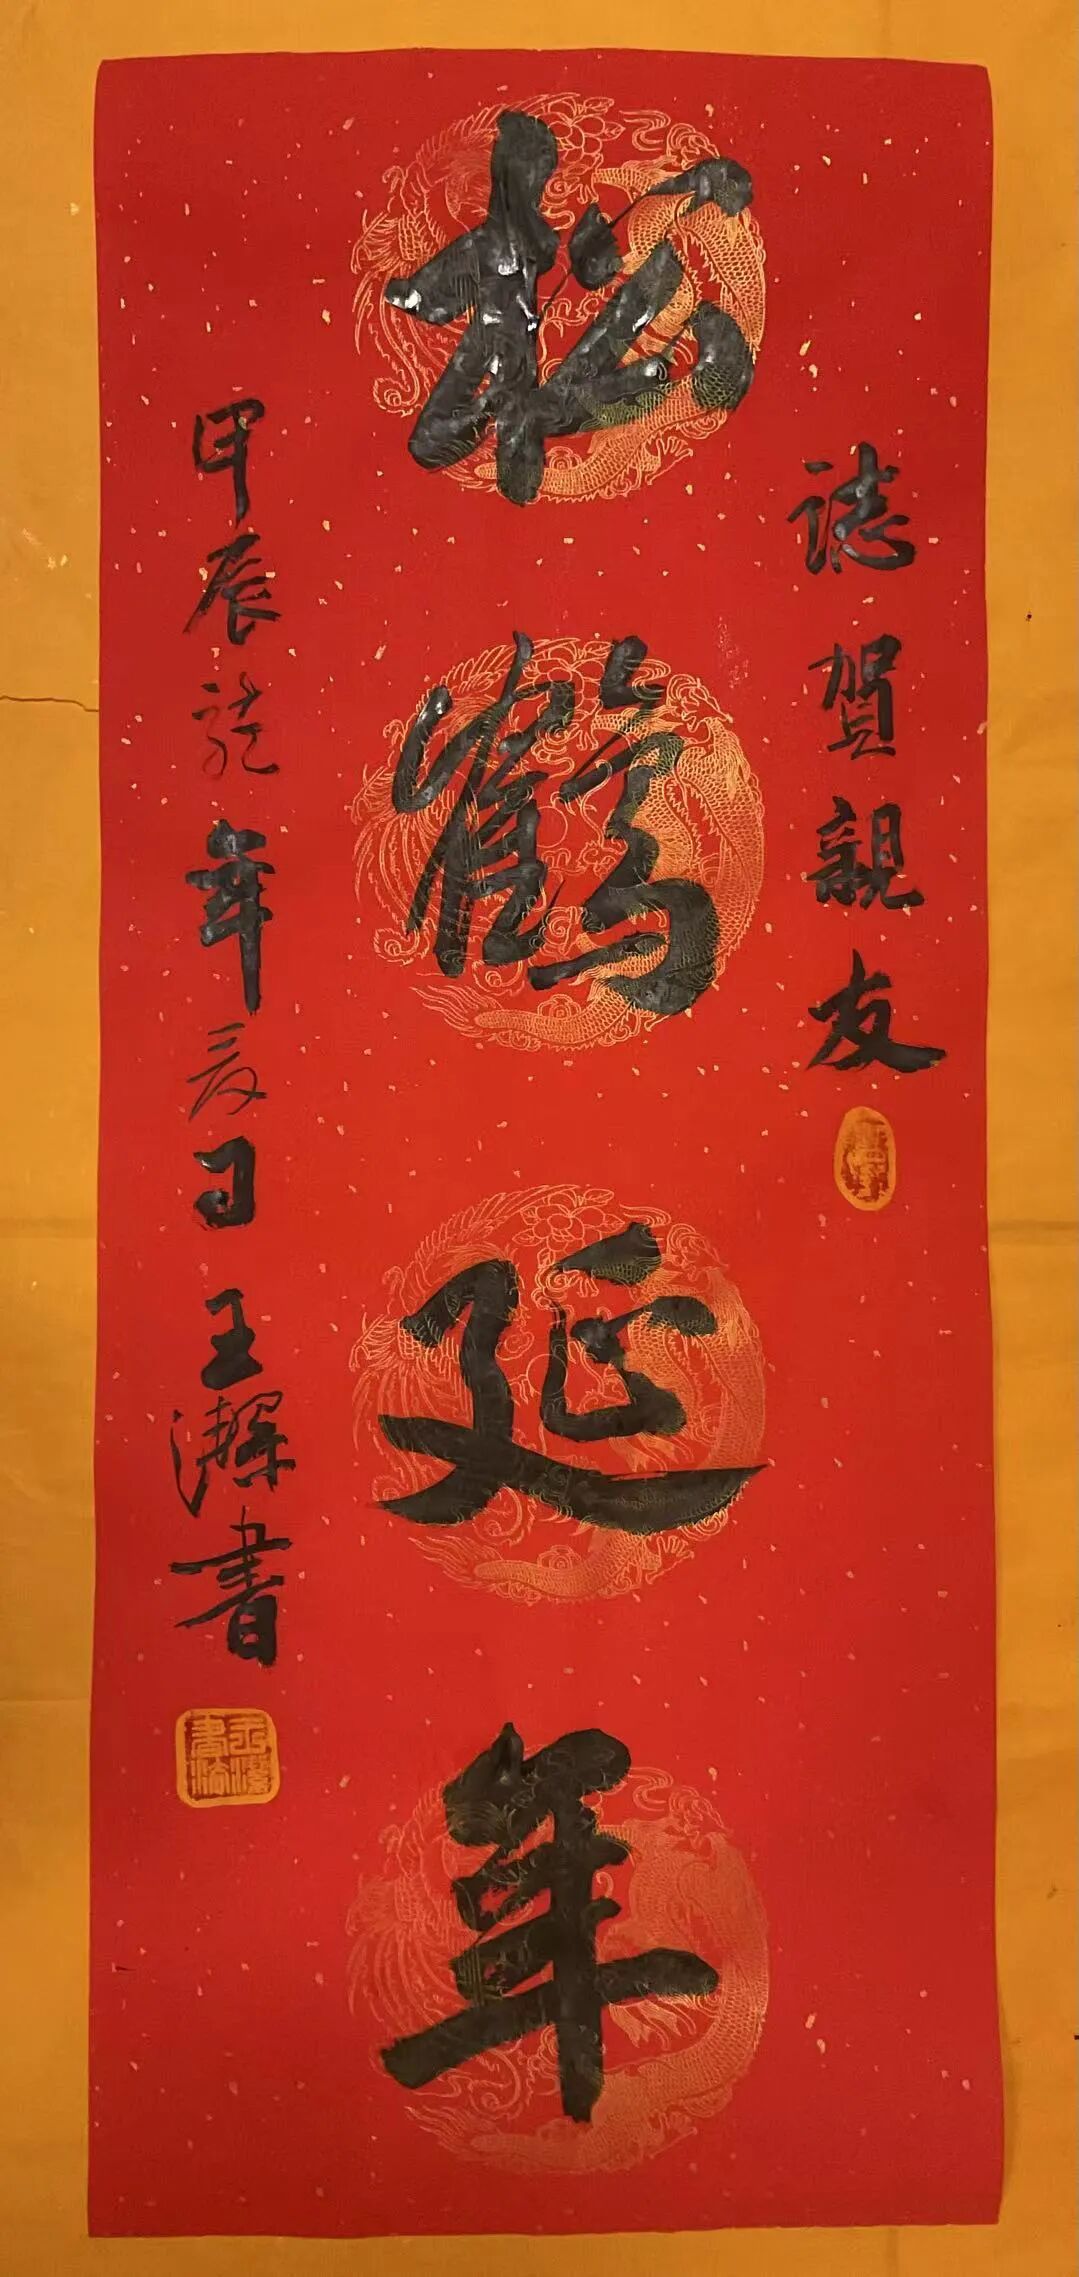 誌賀親友
松鶴延年
甲辰龍年夏日王潔書